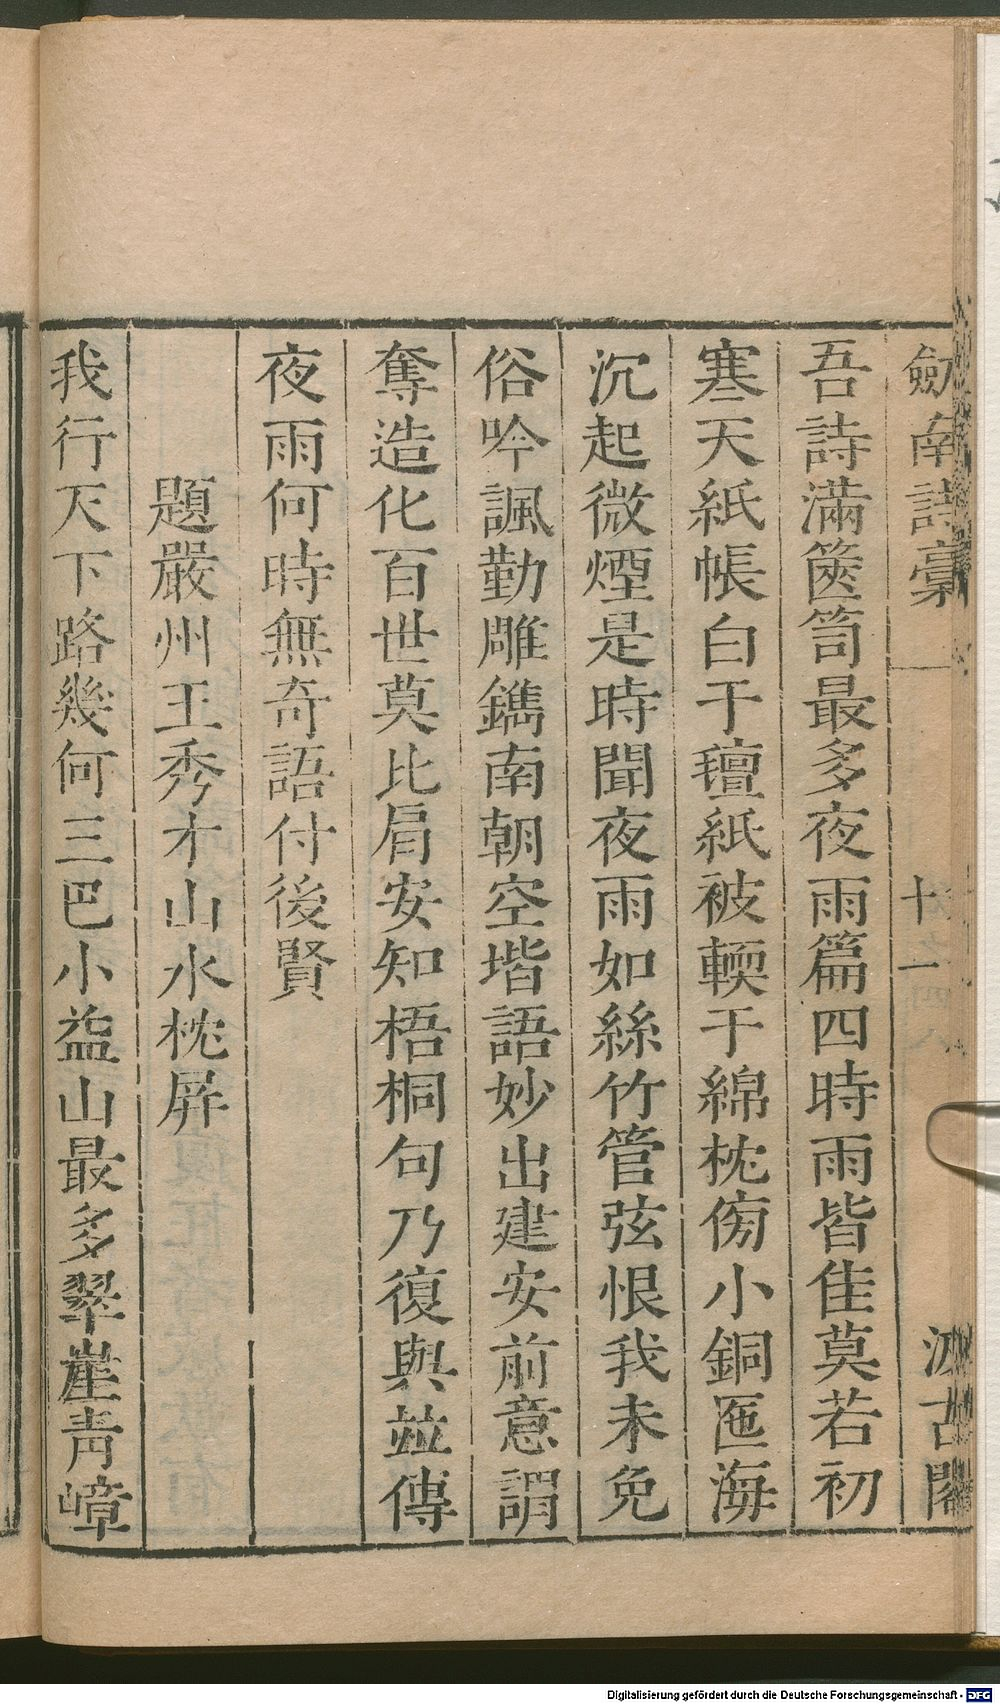 劒南詩稾
十一
汲古閣
吾詩滿篋笥最多夜雨篇四時雨皆佳莫若初
寒天紙帳白于氊紙被輭于綿枕傍小銅匜海
沉起微煙是時聞夜雨如絲竹管弦恨我未免
俗吟諷勤雕鐫南朝空堦語妙出建安前意謂
奪造化百世莫比肩安知梧桐句乃復與並傳
夜雨何時無奇語付後賢
題嚴州王秀才山水枕屏
我行天下路幾何三巴小益山最多翠崖青嶂
Digitalisierung gefördert durch die Deutsche Forschungsgemeinschaft - DFG